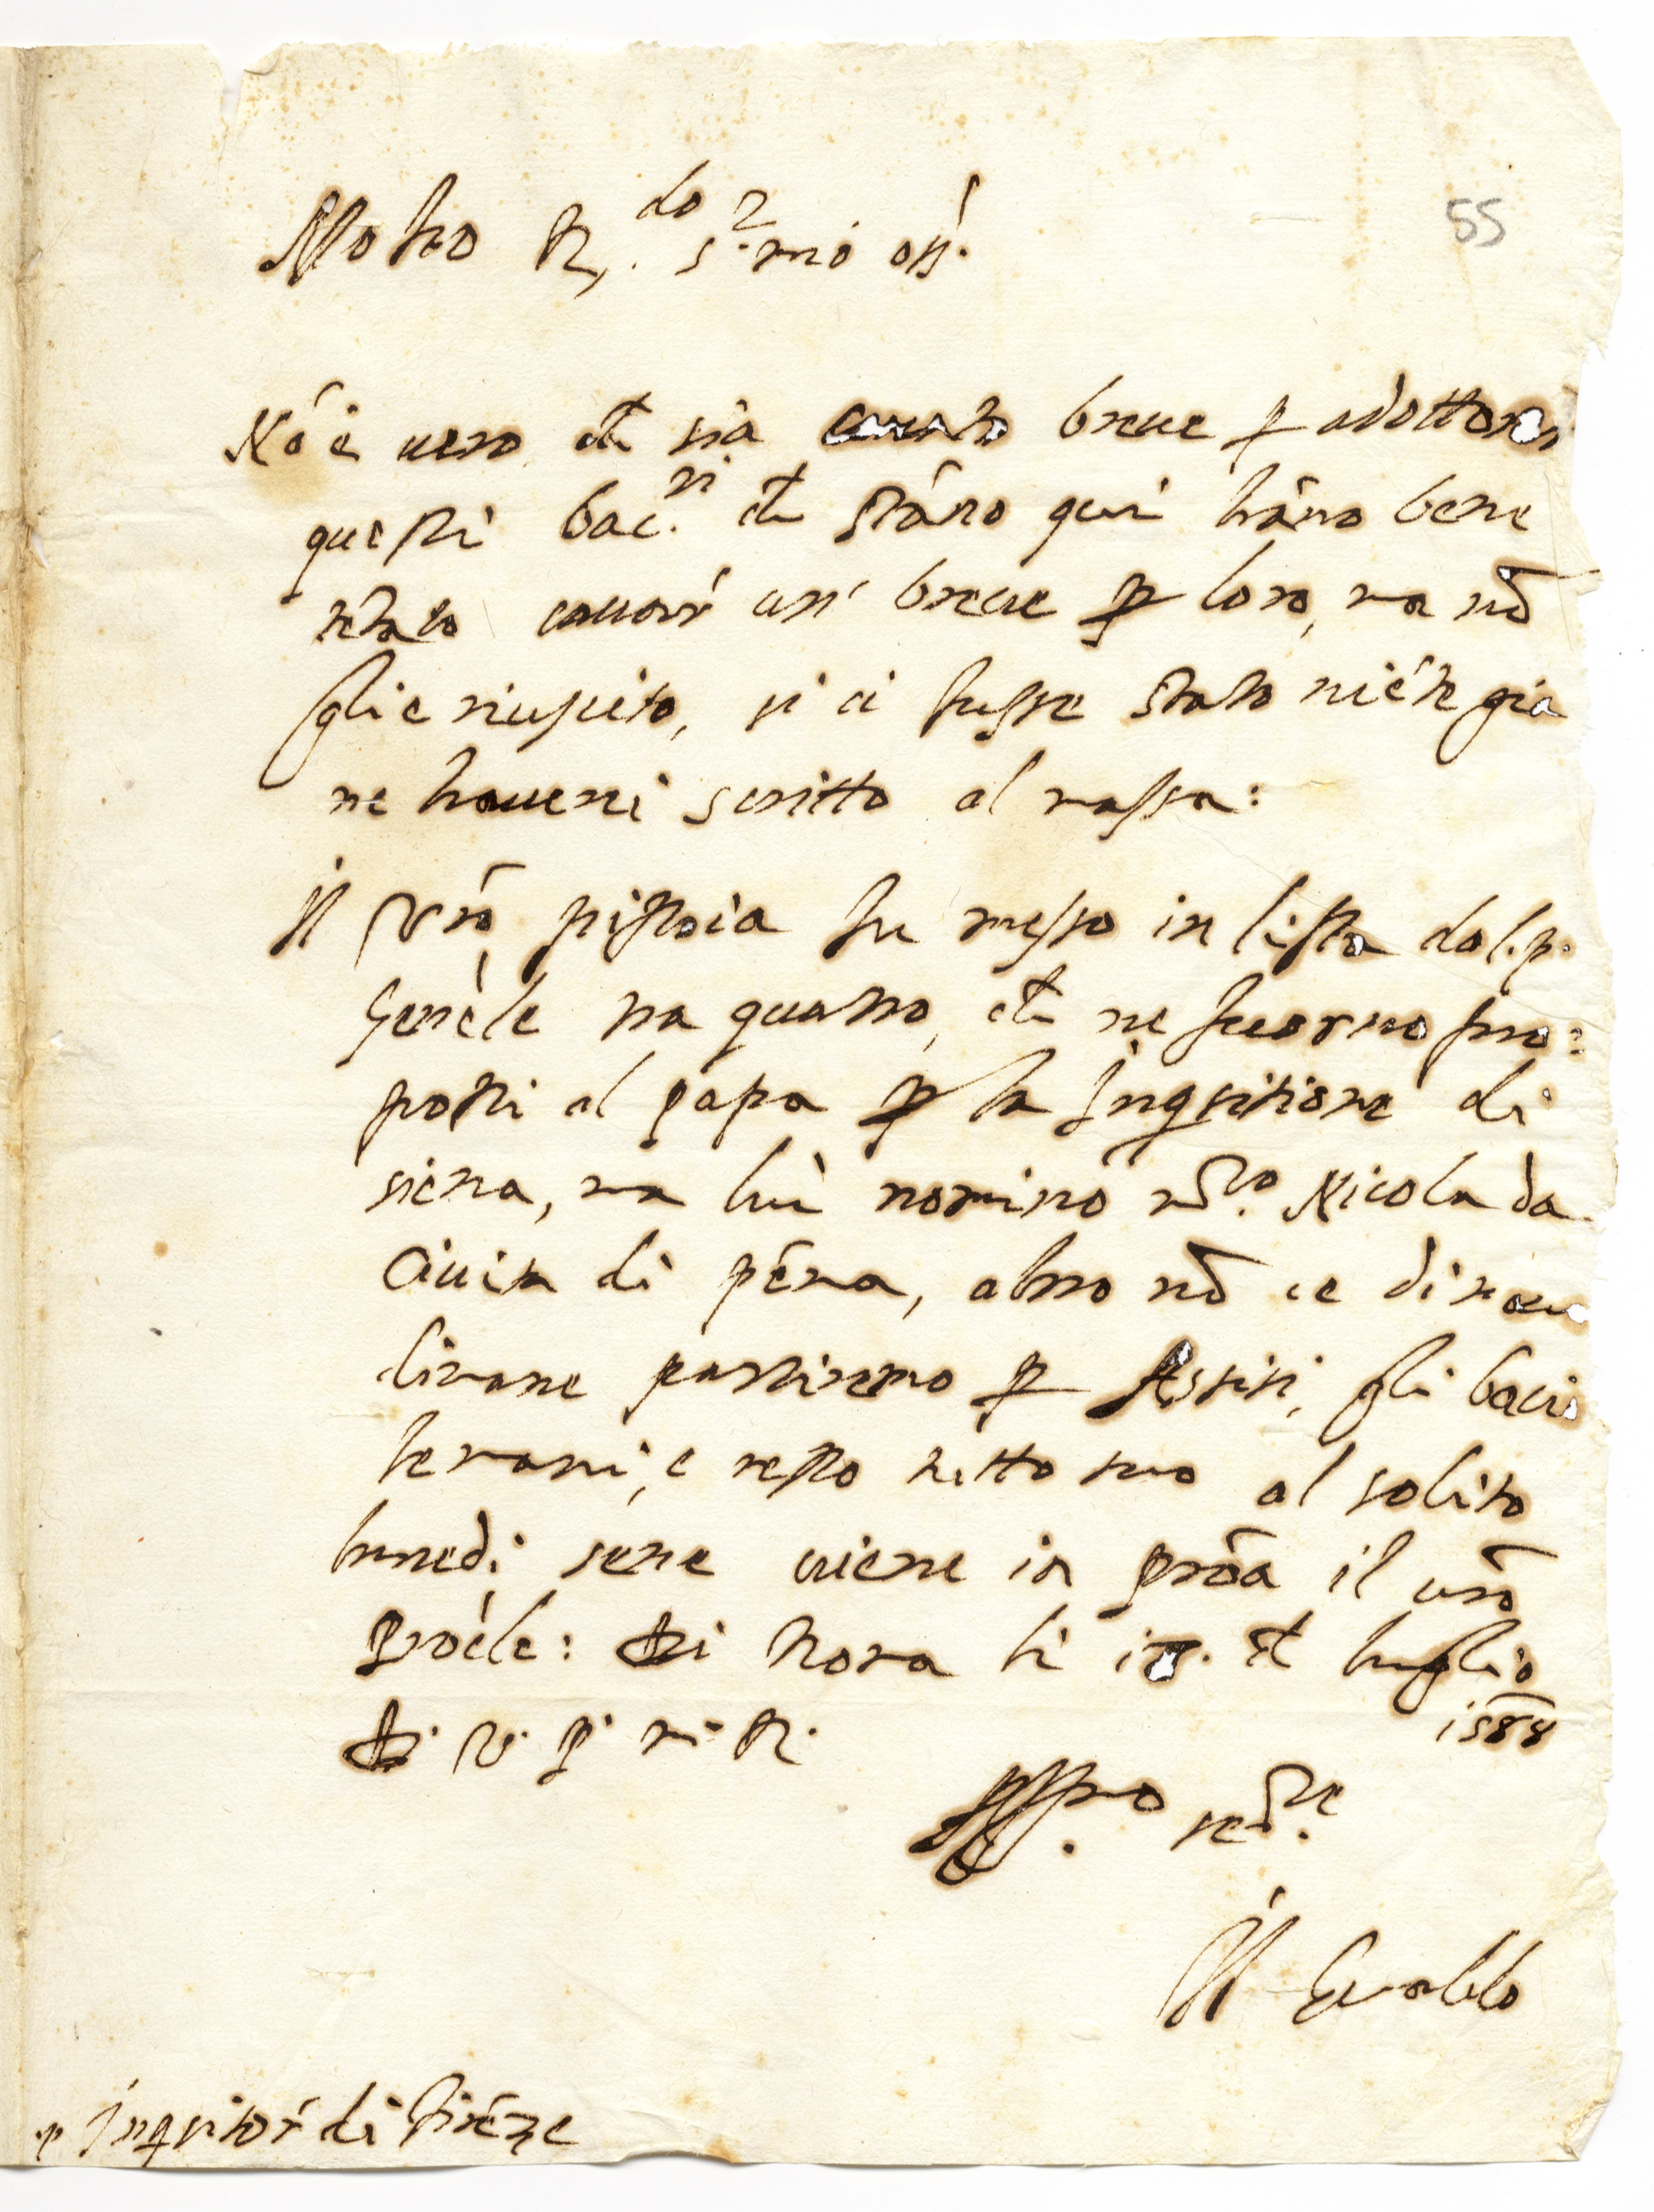 Molto R.do s.r mio oss.
55
Nō è uero che sia cauato breue p adottorar
questi bac.ri che stāno qui hāno bene
tētato cauar un' breue p loro, ma nō
glie riuscito, si ci fusse stato niēte gia
ne hauerei scritto al massa:
Il Vrō pistoia fu messo in lista dal p.
Genēle tra quatro, che ne fuorno pro:
posti al papa p la Inqsitione di
siena, ma lui nominò m.ro Nicola da
Ciuita di pēna, altro nō ce di nouo
limane partiremo p Assisi, gli bacio
le mani, e resto tutto suo al solito
lunedi sene uiene in prōa il urō
Proēle: Di Roma li che luglio
1588
Di V. P. m. R.
Aff.mo ser.re
Il
Inqsitor di Firēze